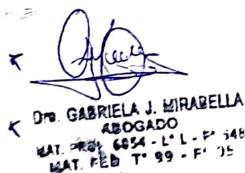 Dra. GABRIELA J. MIRABELLA
ABOGADO
MAT. PROV 6054 - L° L - F° 548
MAT. FED T° 99 - F°